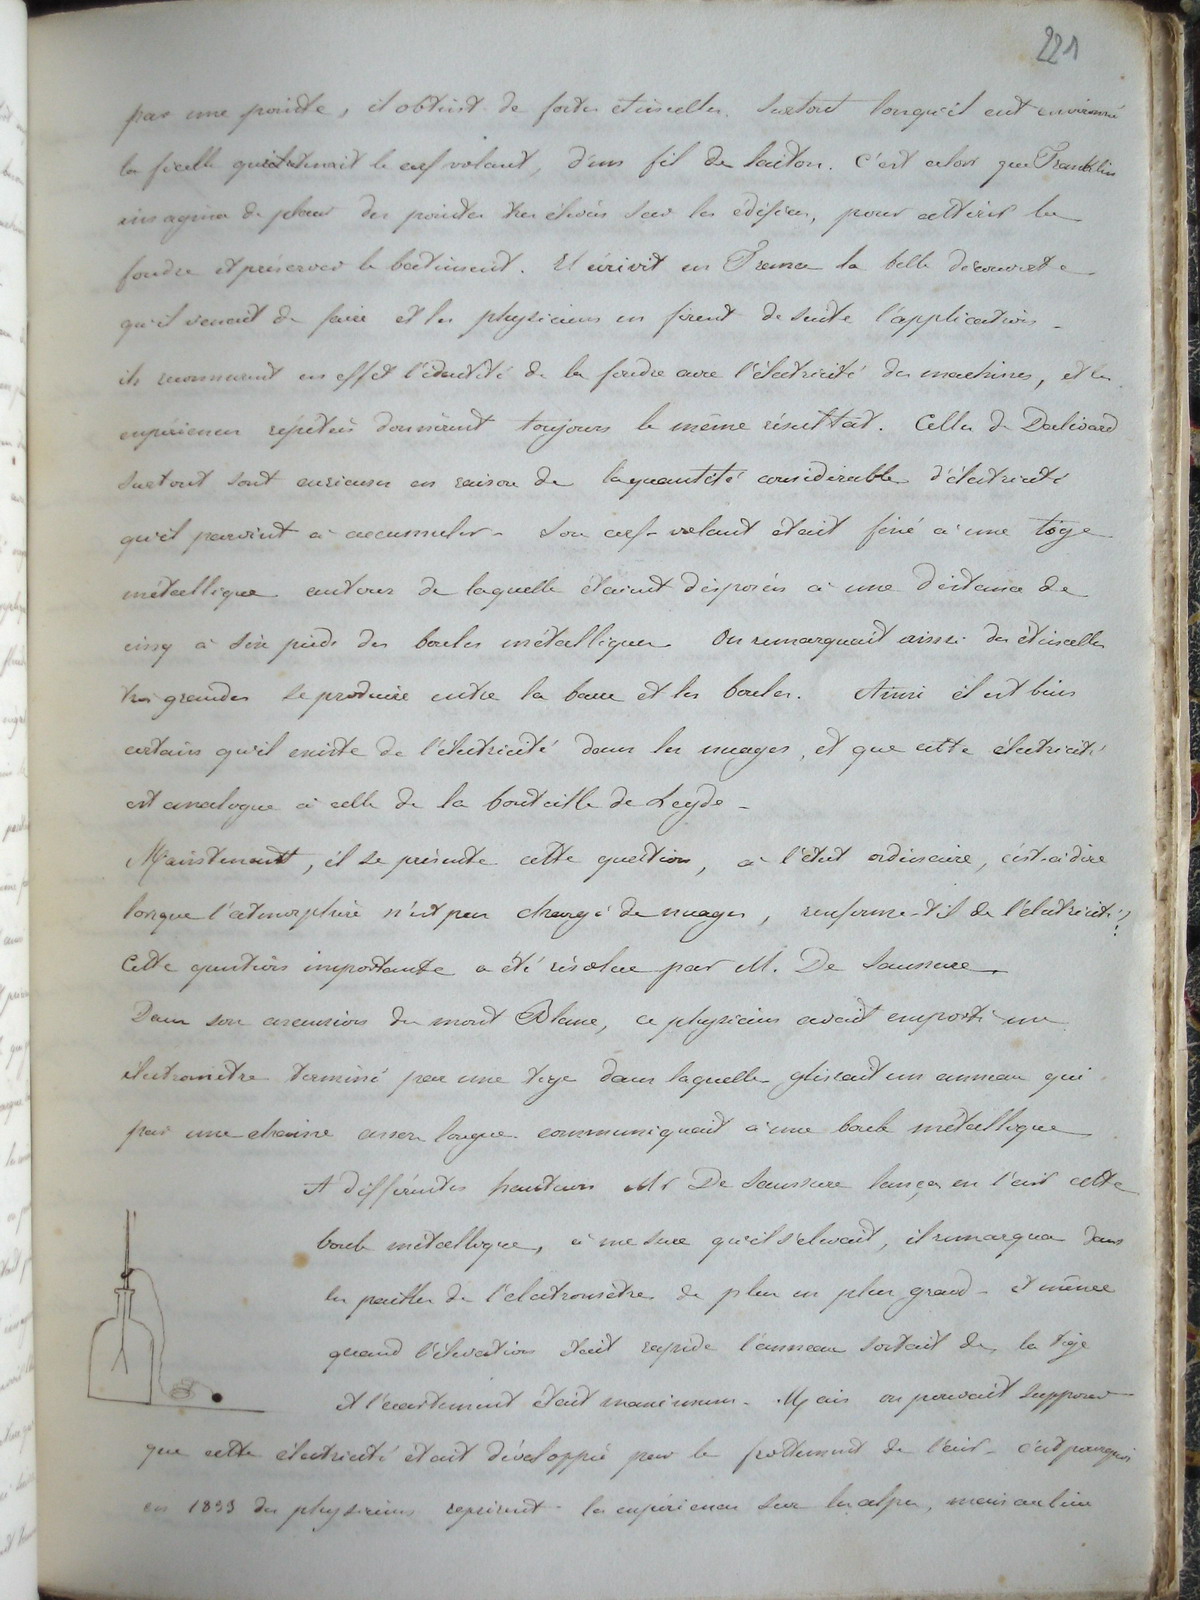 221
par une pointe, il obtint de fortes étincelles. Surtout lorsqu'il eut environné
la ficelle qui retenait le cerf volant, d'un fil de laiton. C'est alors que Franklin
imagina de placer des pointes très élevées sur les édifices, pour attirer la
foudre et préserver le bâtiment. Il écrivit en France la belle découverte
qu'il venait de faire et les physiciens en firent de suite l'application -
ils reconnurent en effet l'identité de la foudre avec l'électricité des machines, et les
expériences répétées donnèrent toujours le même résultat. Celles de Dalivard
surtout sont curieuses en raison de la quantité considérable d'électricité
qu'il parvint à accumuler - Son cerf-volant était fixé à une tige
métallique autour de laquelle étaient disposées à une distance de
cinq à six pieds des boules métalliques On remarquait ainsi des étincelles
très grandes se produire entre la barre et les boules. Ainsi il est bien
certain qu'il existe de l'électricité dans les nuages, et que cette électricité
est analogue à celle de la bouteille de Leyde -
Maintenant, il se présente cette question, à l'état ordinaire, c'est-à-dire
lorsque l'atmosphère n'est pas chargé de nuages, renferme-t-il de l'électricité?
Cette question importante a été résolue par M. De Saussure.
Dans son ascension du mont Blanc, ce physicien avait emporté un
électromètre terminé par une tige dans laquelle glissait un anneau qui
par une chaine assez longue communiquait à une boule métallique
A différentes hauteurs Mr De Saussure lança en l'air cette
boule métallique, à mesure qu'il s'élevait, il remarqua dans
les pailles de l'électromètre de plus en plus grand - et même
quand l'élévation était rapide l'anneau sortait de la tige
et l'écartement était maximum - Mais on pouvait supposer
que cette électricité était développée par le frottement de l'air - c'est pourquoi
en 1833 des physiciens reprirent les expériences sur les alpes, mais au lieu